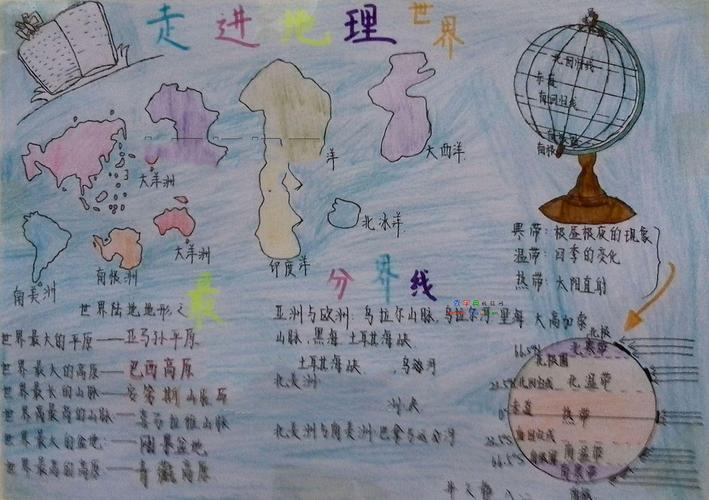 走进地理世界
北回归线
赤道
南回归线
大洋洲
洋
大西洋
北冰洋
印度洋
大洋洲
南极洲
南美洲
寒带：极昼极夜的现象
温带：四季的变化
热带：太阳直射
世界陆地地形之最
世界最大的平原——亚马孙平原
世界最大的高原——巴西高原
世界最长的山脉——安第斯山脉
世界最高的山脉——喜马拉雅山脉
世界最大的盆地——刚果盆地
世界最高的高原——青藏高原
分界线
亚洲与欧洲：乌拉尔山脉，乌拉尔河 里海 大高加索
山脉，黑海 土耳其海峡
土耳其海峡
北美洲
北美洲与南美洲：巴拿马运河
北极
66.5°N
北寒带
北极圈
23.5°N
北回归线
北温带
0°
赤道
热带
23.5°S
南回归线
南温带
66.5°S
南极圈
南寒带